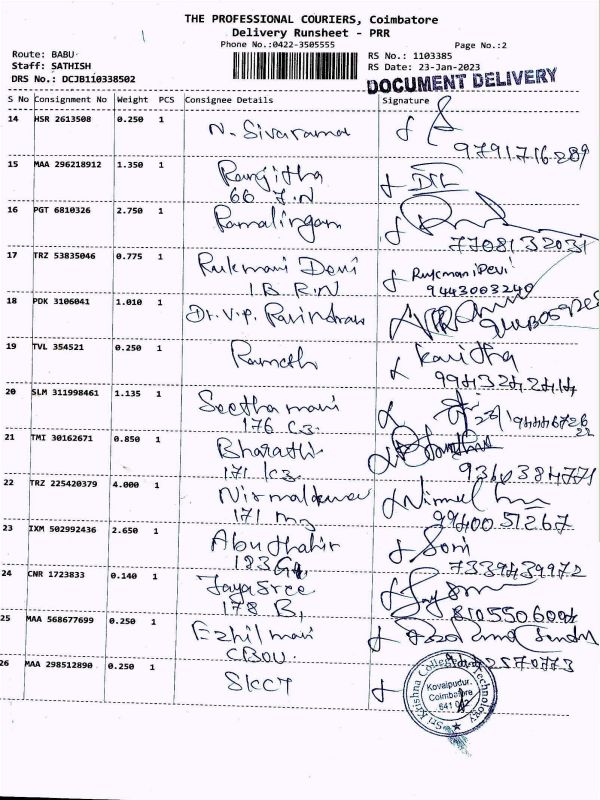 THE PROFESSIONAL COURIERS, Coimbatore
Delivery Runsheet - PRR
Phone No.:0422-3505555 Page No.:2
Route: BABU RS No.: 1103385
Staff: SATHISH RS Date: 23-Jan-2023
DRS No.: DCJB110338502 DOCUMENT DELIVERY
S No Consignment No Weight PCS Consignee Details Signature
14 HSR 2613508 0.250 1 N. Sivarama
9791716289
15 MAA 296218912 1.350 1 Ranjitha
66 J.N
16 PGT 6810326 2.750 1 Ramalingam
7708132031
17 TRZ 53835046 0.775 1 Rukmani Devi Rukmani Devi
1B R.N 9443003240
18 PDK 3106041 1.010 1 Dr. V.P. Ravindran
19 TVL 354521 0.250 1 Ramesh Kavitha
9943242414
20 SLM 311998461 1.135 1 Seethamani
176 C3.
21 TMI 30162671 0.850 1 Bharathi
171 K3
22 TRZ 225420379 4.000 1 Nirmalkumar Nirmal
171 m3 9940051267
23 IXM 502992436 2.650 1 Abuthahir Soni
183 7339439972
24 CNR 1723833 0.140 1 Jayasree
178 B,
25 MAA 568677699 0.250 1 Ezhilmani
CBOU.
26 MAA 298512890 0.250 1 SKCT
Sri Krishna College of Technology
Kovaipudur,
Coimbatore
641 042